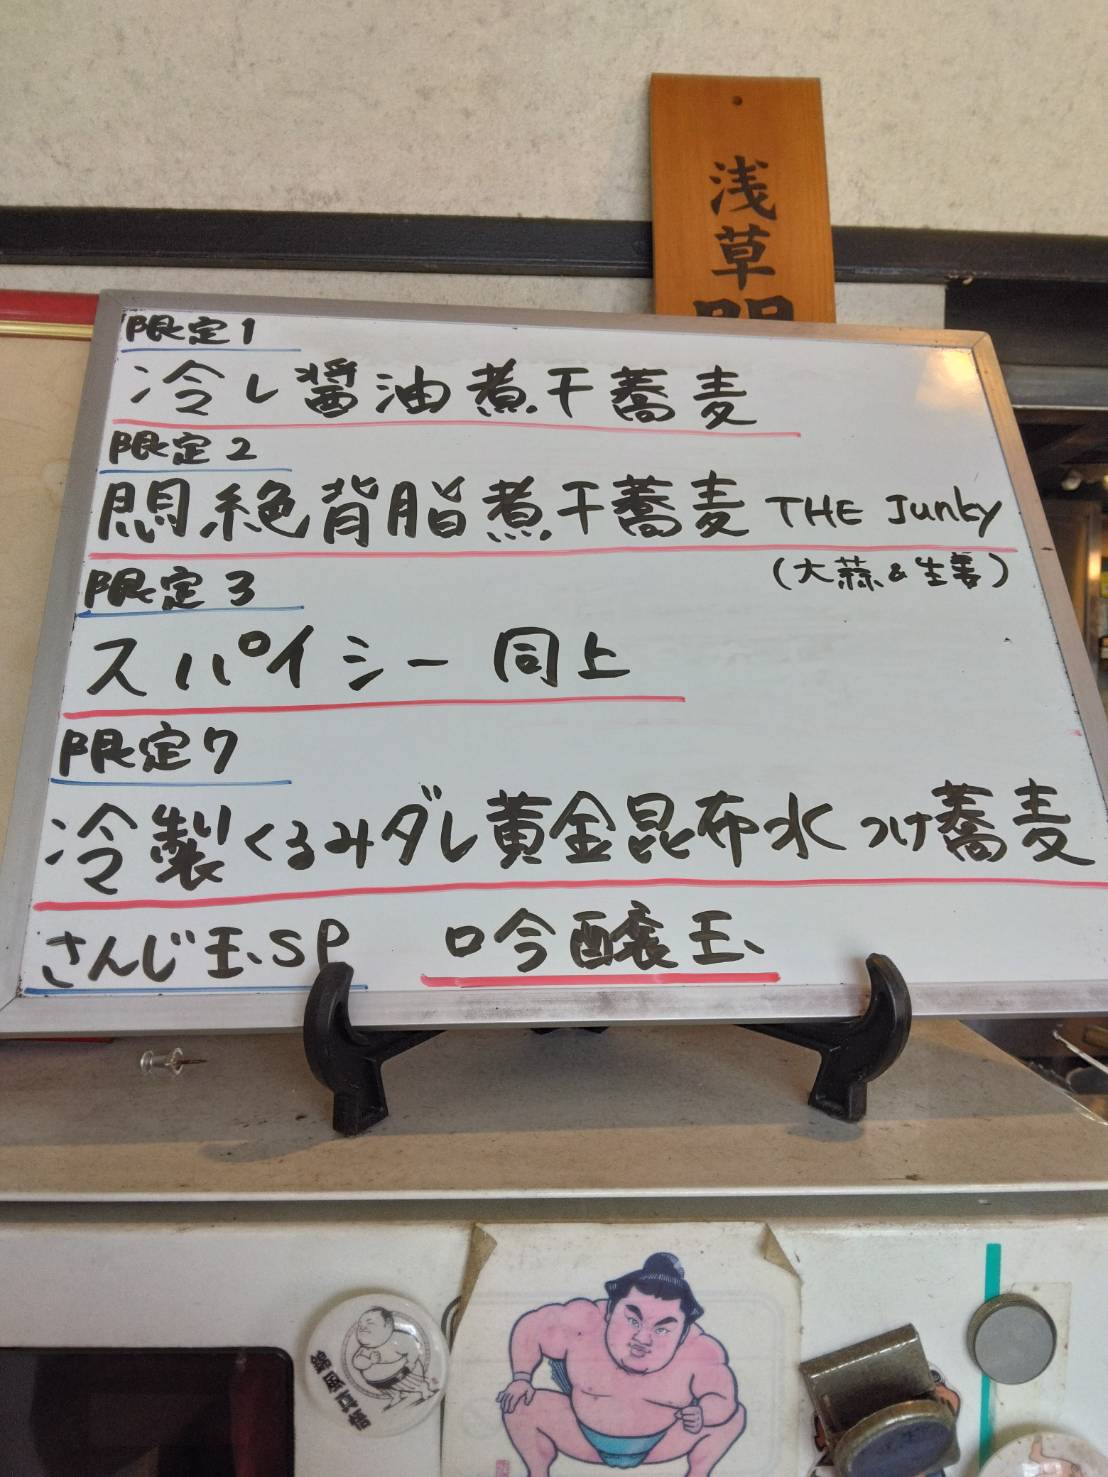 浅草
限定1
冷し醤油煮干蕎麦
限定2
悶絶背脂煮干蕎麦 THE Junky
(大蒜&生姜)
限定3
スパイシー 同上
限定7
冷製くるみダレ黄金昆布水つけ蕎麦
さんじ玉SP 吟醸玉